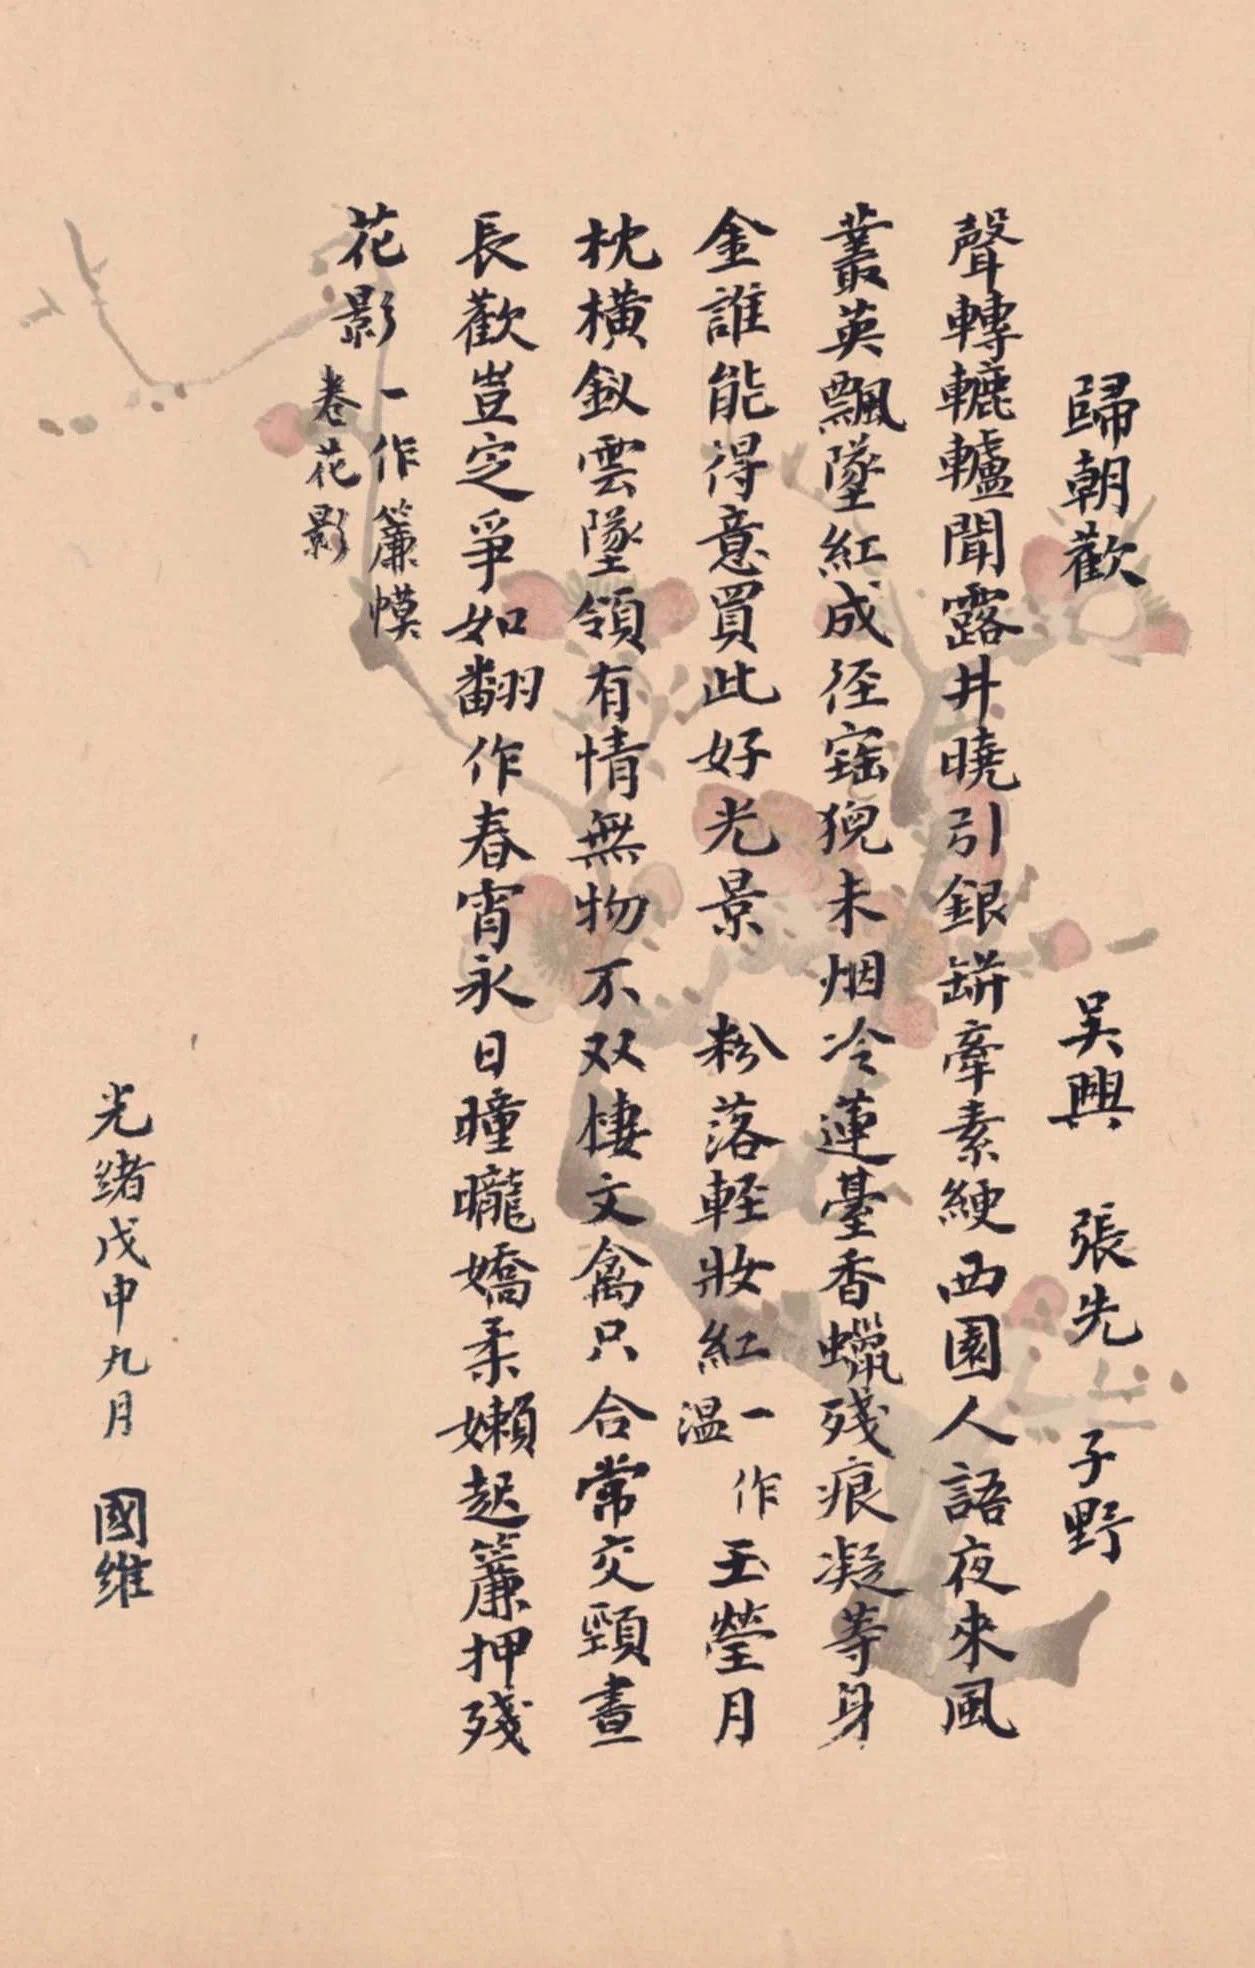 歸朝歡
吳興 張先 子野
聲轉轆轤聞露井曉引銀缾牽素綆西園人語夜來風
叢英飄墜紅成徑寶猊未烟冷蓮臺香蠟殘痕凝等身
金誰能得意買此好光景 粉落輕妝紅一作溫玉瑩月
枕橫釵雲墜領有情無物不双棲文禽只合常交頸晝
長歡豈定爭如翻作春宵永日曈曨嬌柔嬾起簾押殘
花影一作簾幙卷花影
光緒戊申九月 國維